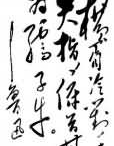 横眉冷對
夫指，俯首甘
为孺子牛。
——魯迅